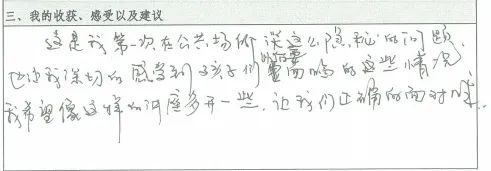 三、我的收获、感受以及建议
这是我第一次在公共场所谈这么隐私的问题，
也让我深切的感受到了孩们所要面临的这些情况，
我希望像这样的讲座多开一些，让我们正确的面对